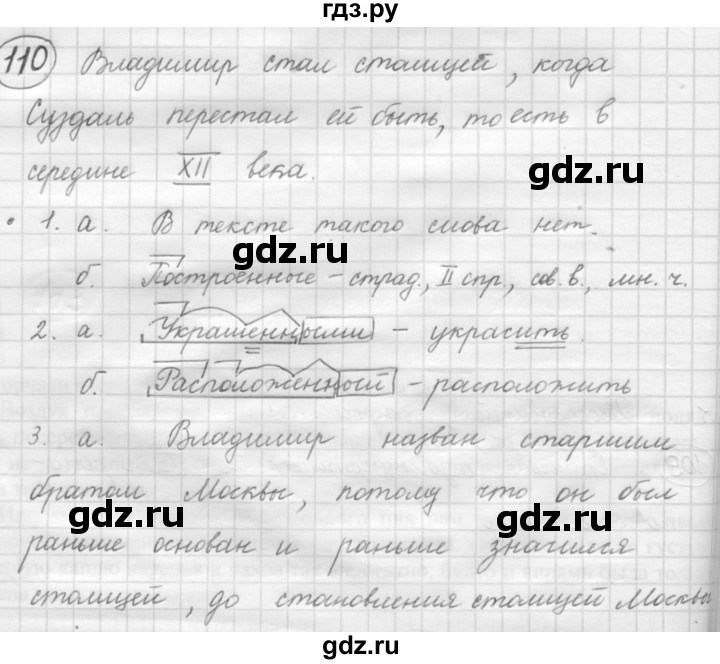 гдз.ру
110 Владимир стал столицей, когда
Суздаль перестал ей быть, то есть в
середине XII века.
gdz.ru
• 1. а. В тексте такого слова нет.
gdz.ru gdz.ru
б. Построенные – страд., II спр., сов. в., мн. ч.
2. а. Украшенными – украсить.
gdz.ru
б. Расположенный – расположить
3. а. Владимир назван старшим
братом Москвы, потому что он был
gdz.ru gdz.ru
раньше основан и раньше значился
столицей, до становления столицей Москвы
gdz.ru